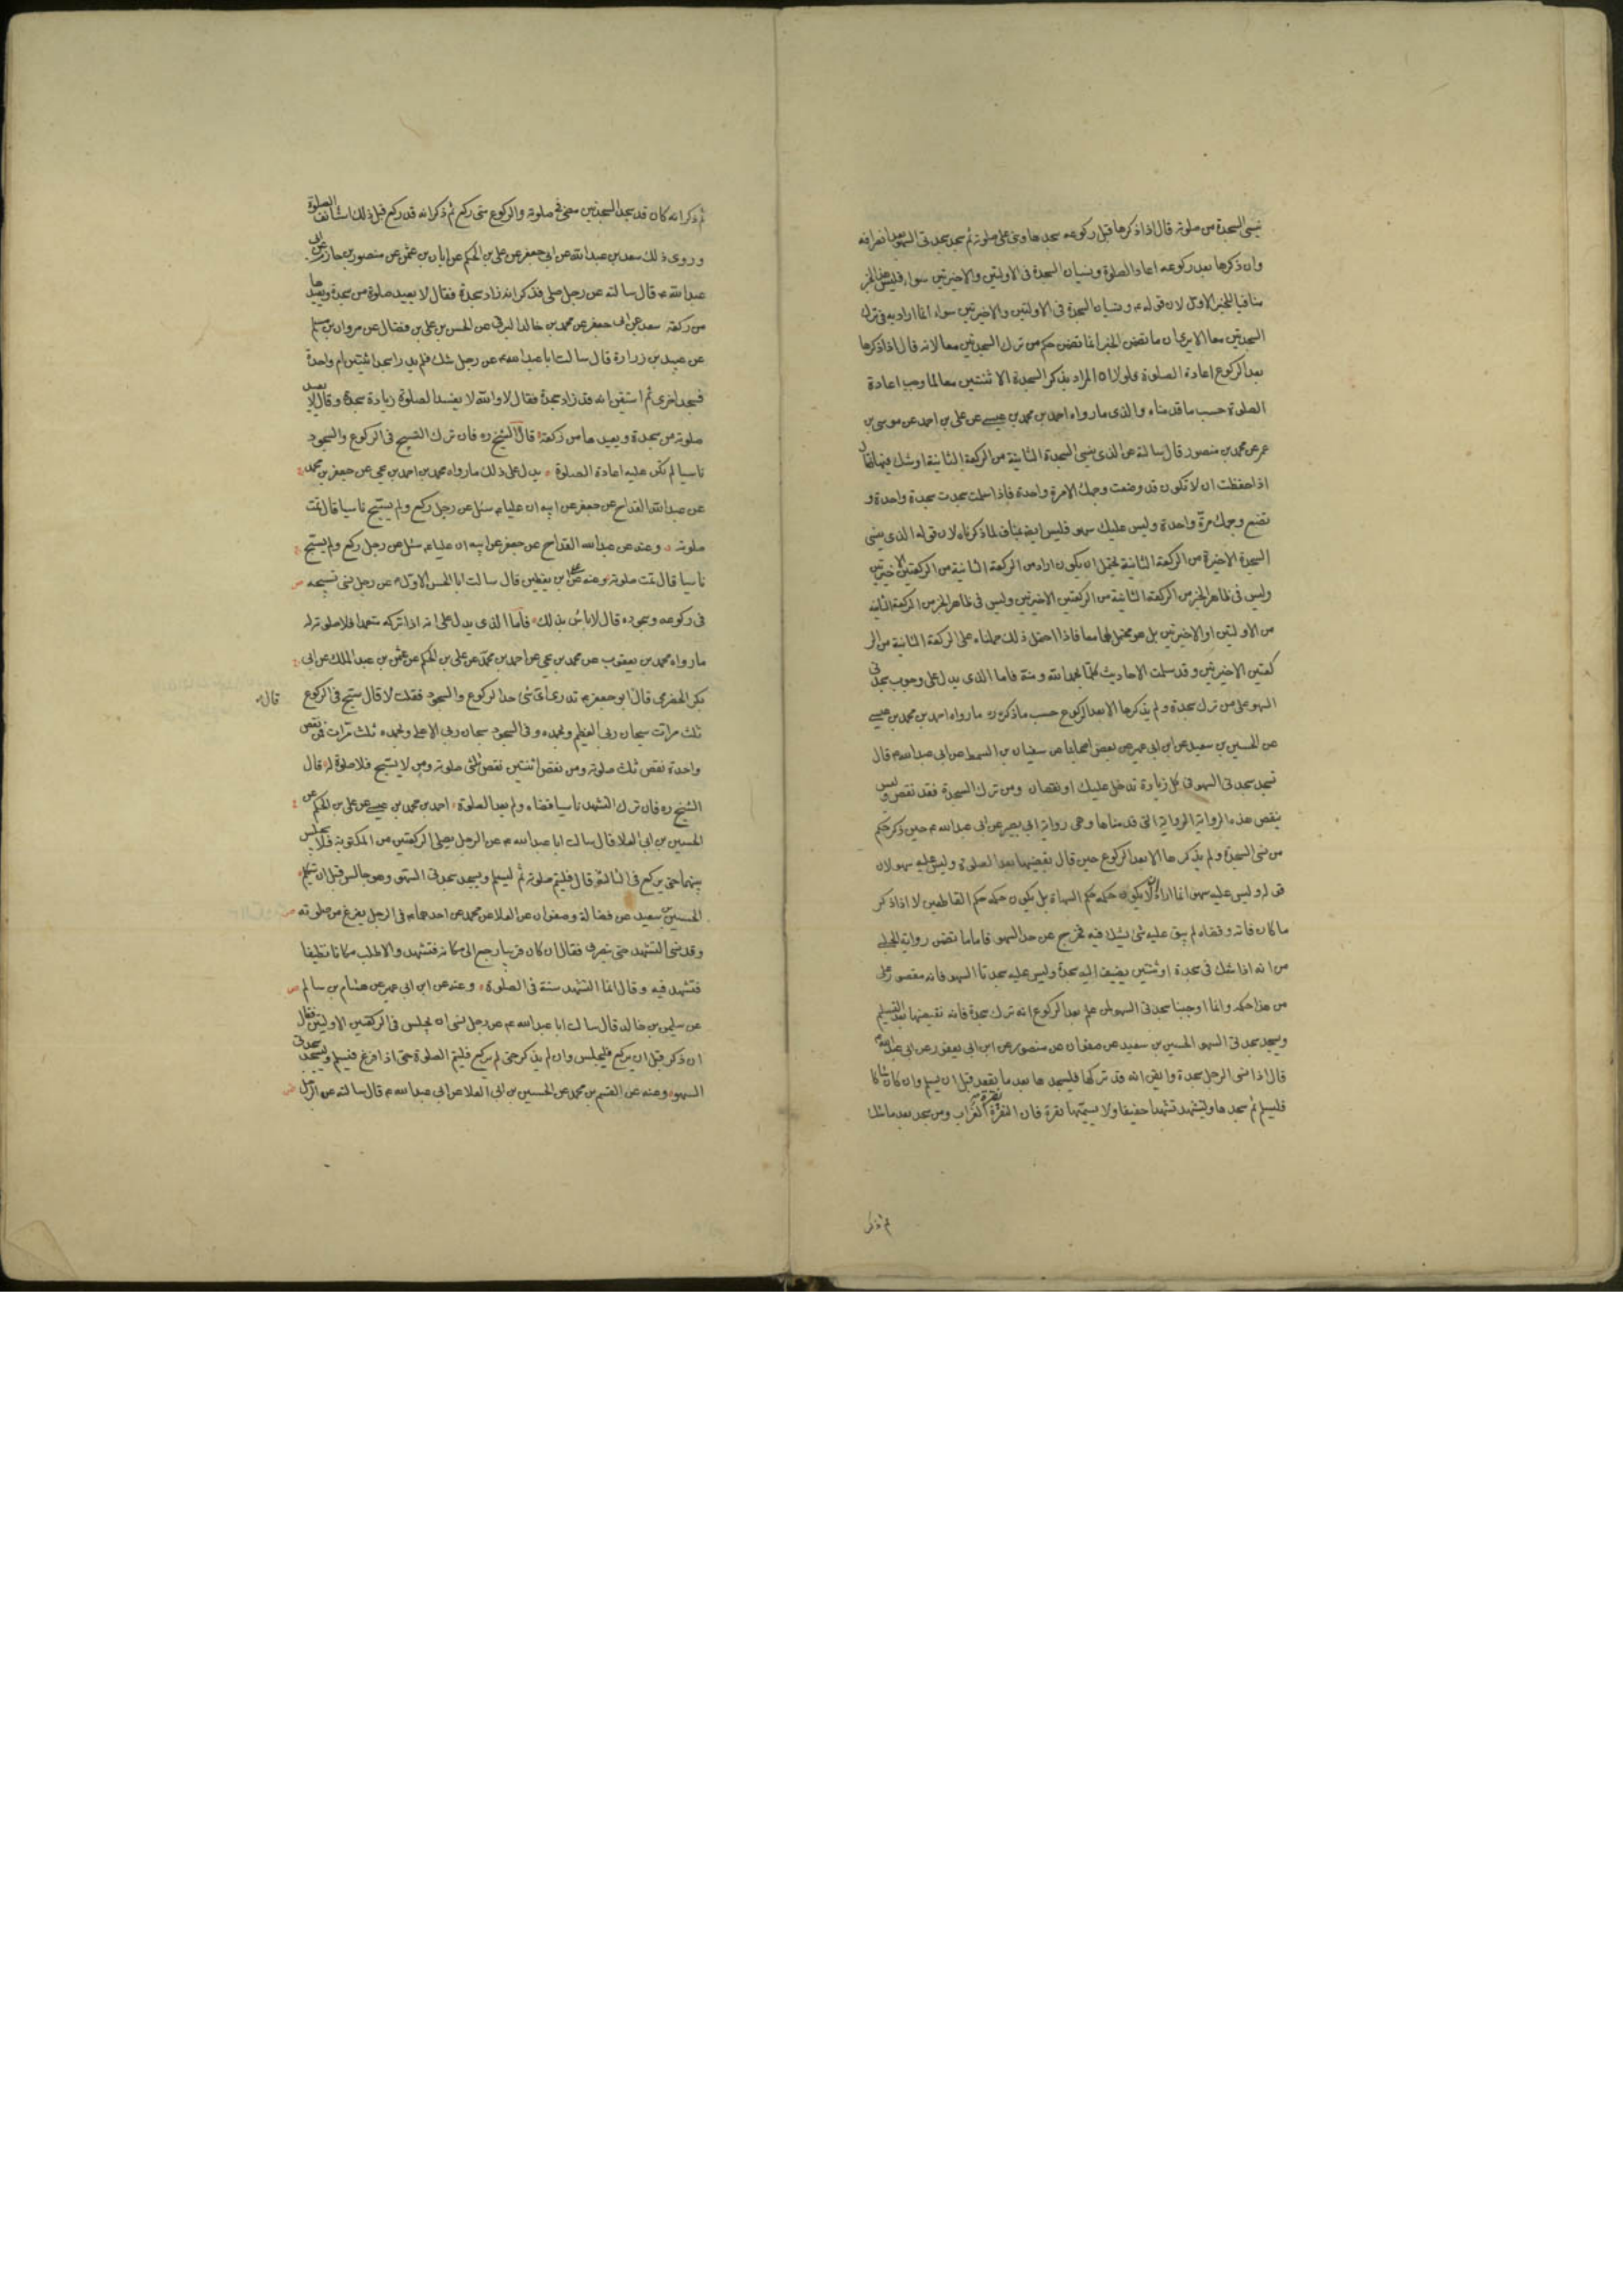 ينسى السجدة من صلوته قال اذا ذكرها قبل ركوعه سجدها وبنى على صلوته ثم سجد سجدتى السهو بعد انصرافه
وان ذكرها بعد ركوعه اعاد الصلوة ونسيان السجدة فى الاولتين والاخيرتين سواء فليس هذا الخبر
منافيا للخبر الاول لان قوله ونسيان السجدة فى الاولتين والاخيرتين سواء انما اراد به فى ترك
السجدتين معا الا يرى ان ما تضمن الخبر انما تضمن حكم من ترك السجدتين معا لانه قال اذا ذكرها
بعد الركوع اعادة الصلوة ولولا ان المراد بذكر السجدة الاثنتين معا لما وجب اعادة
الصلوة حسب ما قدمناه والذى ما رواه احمد بن محمد بن عيسى عن على بن احمد عن موسى بن
عمر عن محمد بن منصور قال سالته عن الذى ينسى السجدة الثانية من الركعة الثانية او شك فيها فقال
اذا خفت ان لا تكون قد وضعت وجهك الا مرة واحدة فاذا سلمت سجدت سجدة واحدة و
تضع وجهك مرة واحدة وليس عليك سهو فليس ايضا بمناف لما ذكرناه لان قوله الذى ينسى
السجدة الاخيرة من الركعة الثانية يحتمل ان يكون اراد من الركعة الثانية من الركعتين الاخيرتين
وليس فى ظاهر الخبر من الركعة الثانية من الركعتين الاخيرتين وليس فى ظاهر الخبر من الركعة الثانية
من الاولتين او الاخيرتين بل هو محتمل لهما معا فاذا احتمل ذلك حملناه على الركعة الثانية من الر
كعتين الاخيرتين وقد سلمت الاحاديث كلها بحمد الله ومنه فاما الذى يدل على وجوب سجدتى
السهو على من ترك سجدة ولم يذكرها الا بعد الركوع حسب ما ذكره ره ما رواه احمد بن محمد بن عيسى
عن الحسين بن سعيد عن ابن ابى عمير عن بعض اصحابنا عن سفيان بن السمط عن ابى عبد الله ع قال
تسجد سجدتى السهو فى كل زيادة تدخل عليك او نقصان ومن ترك السجدة فقد نقص وليس
ينقض هذه الرواية الرواية التى قدمناها وهى رواية ابى بصير عن ابى عبد الله ع حين ذكر حكم
من نسى السجدة ولم يذكرها الا بعد الركوع حين قال يقضيها بعد الصلوة وليس عليه سهو لان
قوله وليس عليه سهو انما اراد ان لا يكون حكمه حكم السهاة بل يكون حكمه حكم القاطعين لا اذا ذكر
ما كان فاته وقضاه لم يبق عليه شئ يشك فيه فخرج عن حد السهو فاما ما تضمن رواية الحلبى
من انه اذا شك فى سجدة او ثنتين يضيف اليه سجدة وليس عليه سجدتا السهو فانه مقصور على
من هذا حكمه وانما اوجبنا سجدتى السهو لمن علم بعد الركوع انه ترك سجدة فانه يقضيها بعد التسليم
ويسجد سجدتى السهو الحسين بن سعيد عن صفوان عن منصور عن ابن ابى يعفور عن ابى عبد الله ع
قال اذا نسى الرجل سجدة وايقن انه قد تركها فليسجدها بعد ما يقعد قبل ان يسلم وان كان شاكا
فليسلم ثم يسجدها وليتشهد تشهدا خفيفا ولا يسميها نقرة فان النقرة نقرة الغراب ومن سجد بعد ما شك
ثم ذكر
ثم ذكر انه كان قد سجد السجدتين مضى فى صلوته والركوع متى ركع ثم ذكر انه قد ركع قبل ذلك استأنف الصلوة
وروى ذلك سعد بن عبد الله عن ابى جعفر عن على بن الحكم عن ابان بن عثمن عن منصور بن حازم عن ابى
عبد الله ع قال سالته عن رجل صلى فذكر انه زاد سجدة فقال لا يعيد صلوة من سجدة ويعيدها
من ركعة سعد عن ابى جعفر عن محمد بن خالد البرقى عن الحسن بن على بن فضال عن مروان بن مسلم
عن عبيد بن زرارة قال سالت ابا عبد الله ع عن رجل شك فلم يدر اسجد اثنتين ام واحدة
فسجد اخرى ثم استيقن انه قد زاد سجدة فقال لا والله لا يفسد الصلوة زيادة سجدة وقال لا يعيد
صلوته من سجدة ويعيدها من ركعة قال الشيخ ره فان ترك التسبيح فى الركوع والسجود
ناسيا لم يكن عليه اعادة الصلوة يدل على ذلك ما رواه محمد بن احمد بن يحيى عن جعفر بن محمد
عن عبد الله القداح عن جعفر عن ابيه ان عليا ع سئل عن رجل ركع ولم يسبح ناسيا قال تمت
صلوته وعنه عن عبد الله القداح عن جعفر عن ابيه ان عليا ع سئل عن رجل ركع ولم يسبح
ناسيا قال تمت صلوته وعنه عن على بن يقطين قال سالت ابا الحسن الاول ع عن رجل نسى تسبيحه
فى ركوعه وسجوده قال لا باس بذلك فاما الذى يدل على انه اذا تركه متعمدا فلا صلوة له
ما رواه محمد بن يعقوب عن محمد بن يحيى عن احمد بن محمد عن على بن الحكم عن عثمن بن عبد الملك عن ابى
بكر الحضرمى قال قال ابو جعفر ع تدرى اى شئ حد الركوع والسجود فقلت لا قال تسبح فى الركوع
ثلث مرات سبحان ربى العظيم وبحمده وفى السجود سبحان ربى الاعلى وبحمده ثلث مرات فمن نقص
واحدة نقص ثلث صلوته ومن نقص اثنتين نقص ثلثى صلوته ومن لا يسبح فلا صلوة له قال
الشيخ ره فان ترك التشهد ناسيا قضاه ولم يعد الصلوة احمد بن محمد بن عيسى عن على بن الحكم عن
الحسين بن ابى العلا قال سالت ابا عبد الله ع عن الرجل يصلى الركعتين من المكتوبة فلا يجلس
بينهما حتى يركع فى الثالثة قال فليتم صلوته ثم ليسلم ويسجد سجدتى السهو وهو جالس قبل ان يتكلم
الحسين بن سعيد عن فضالة وصفوان عن العلا عن محمد عن احدهما ع فى الرجل يفرغ من صلوته
وقد نسى التشهد حتى ينصرف فقال ان كان قريبا رجع الى مكانه فتشهد والا طلب مكانا نظيفا
فتشهد فيه وقال انما التشهد سنة فى الصلوة وعنه عن ابن ابى عمير عن هشام بن سالم
عن سليمن بن خالد قال سالت ابا عبد الله ع عن رجل نسى ان يجلس فى الركعتين الاولتين فقال
ان ذكر قبل ان يركع فليجلس وان لم يذكر حتى لم يركع فليتم الصلوة حتى اذا فرغ فليسلم ويسجد سجدتى
السهو وعنه عن القسم بن محمد عن الحسين بن ابى العلا عن ابى عبد الله ع قال سالته عن الرجل